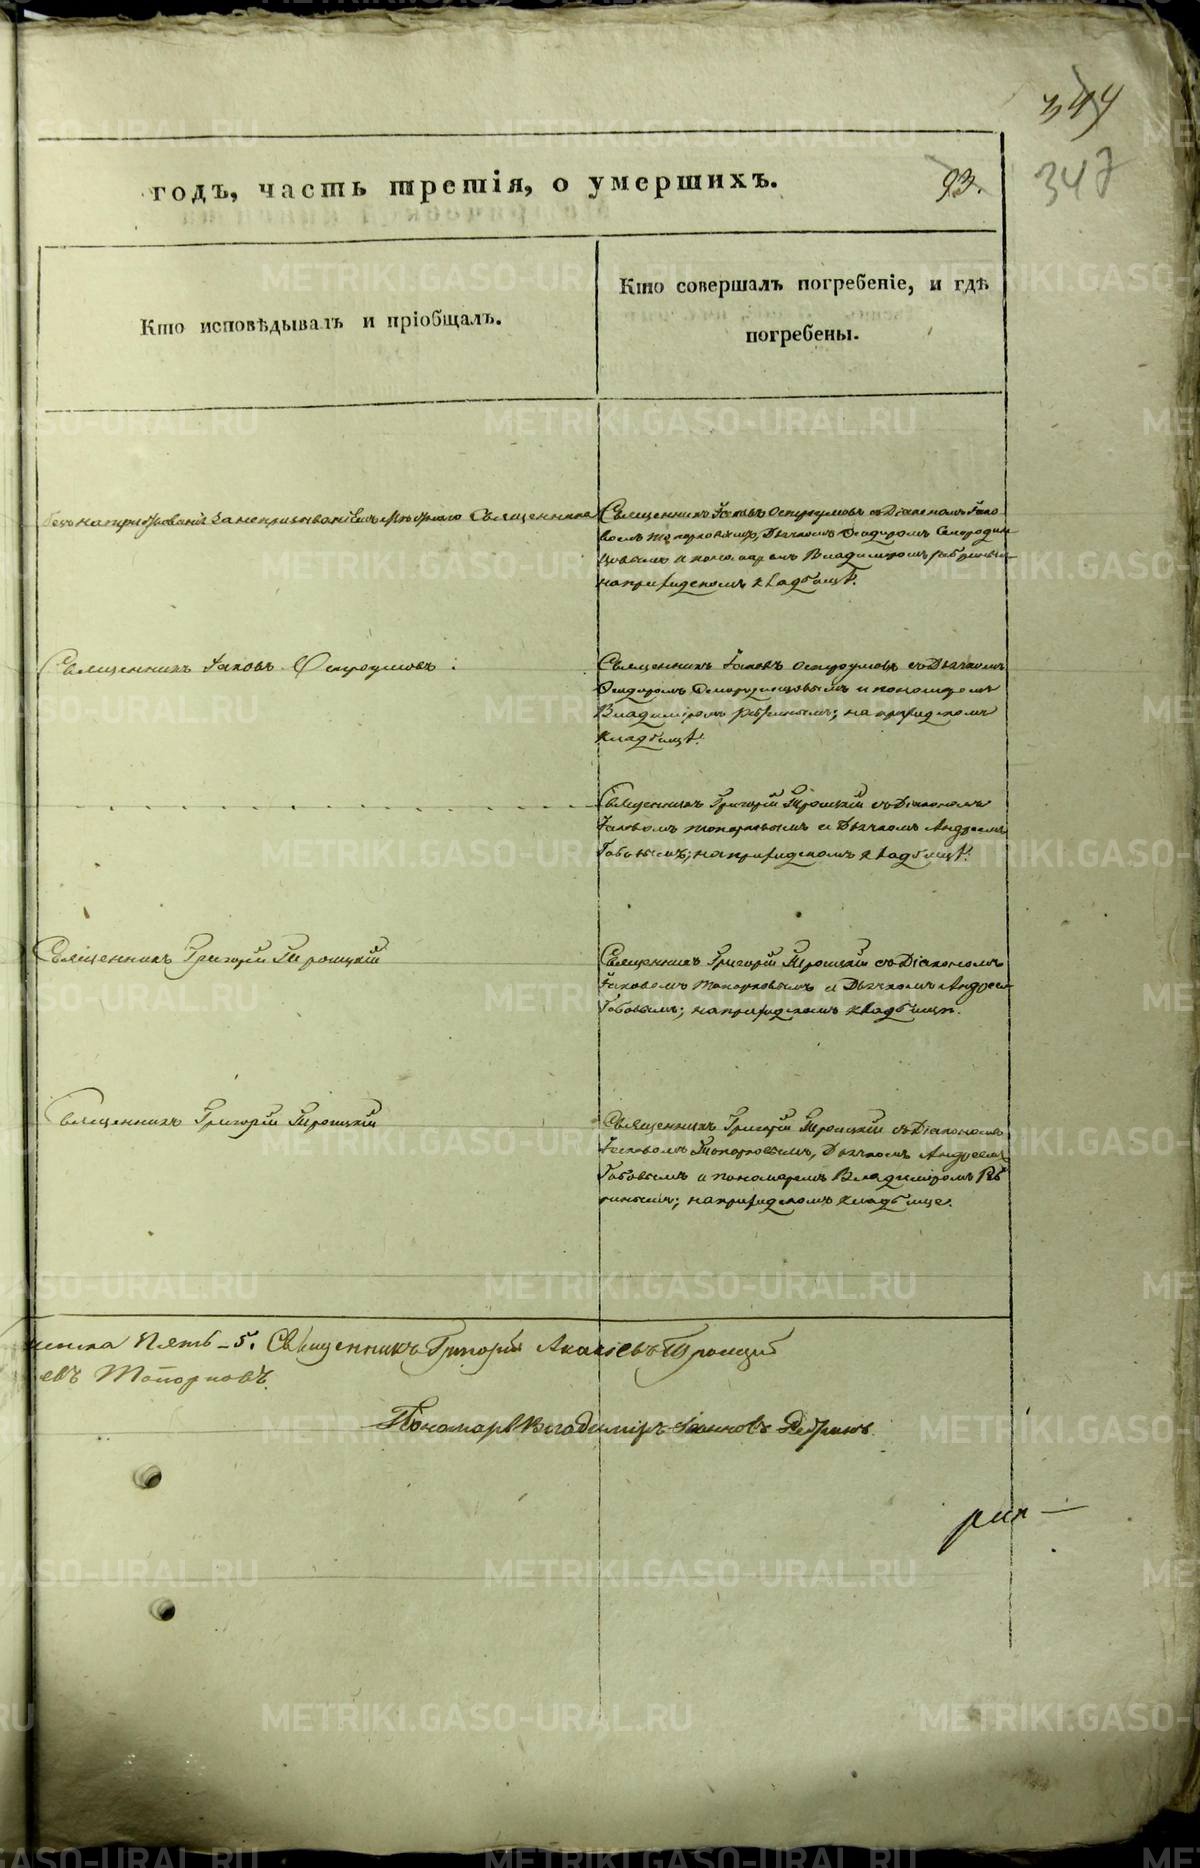 344
годъ, часть третія, о умершихъ.
93.
347
Кто исповѣдывалъ и пріобщалъ.
Кто совершалъ погребеніе, и гдѣ
погребены.
Священника
Священникъ Іаковъ Остроумовъ съ Діакономъ Іако
вомъ Топорковымъ, Дьячкомъ Ѳеодоромъ Смородин
цовымъ и пономаремъ Владиміромъ Рябинымъ
на приходскомъ кладбищѣ.
Священникъ Іаковъ Остроумовъ.
Священникъ Іаковъ Остроумовъ съ Дьячкомъ
Ѳеодоромъ Смородинцовымъ и пономаремъ
Владиміромъ Рябинымъ; на приходскомъ
кладбищѣ.
Священникъ Григорій Троицкій съ Діакономъ
Іаковомъ Топорковымъ и Дьячкомъ Андреемъ
на приходскомъ кладбищѣ.
Священникъ Григорій Троицкій
Священникъ Григорій Троицкій съ Діакономъ
Іаковомъ Топорковымъ и Дьячкомъ Андреем
на приходскомъ кладбищѣ.
Священникъ Григорій Троицкій
Священникъ Григорій Троицкій съ Діакономъ
Іаковомъ Топорковымъ, Дьячкомъ Андреемъ
и пономаремъ Владиміромъ Ря
бинымъ; на приходскомъ кладбище.
Пять - 5. Священникъ Григорій Троицкій
евъ Топорковъ.
Пономарь Владиміръ Іоанновъ Рябинъ.
METRIKI.GASO-URAL.RU